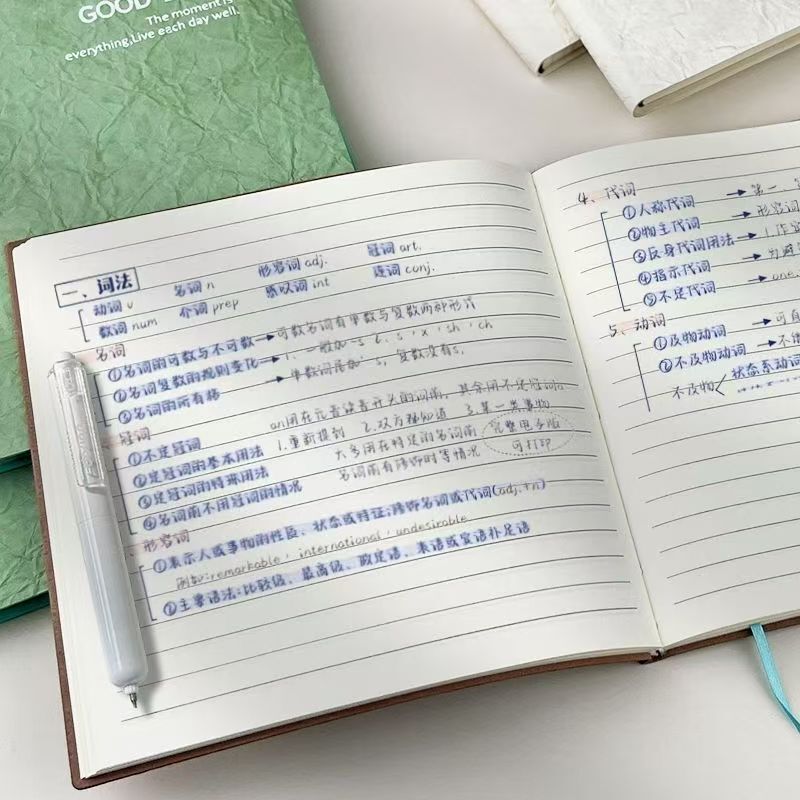 GOOD
The moment is
everything,Live each day well.
一、词法
动词 v 名词 n 形容词 adj. 冠词 art.
数词 num 介词 prep 感叹词 int 连词 conj.
名词
①名词的可数与不可数→可数名词有单数与复数两种形式
②名词复数的规则变化→1、一般加-s 2、s、x、sh、ch
③名词的所有格→单数词尾加's,复数没有s,
冠词
an用在元音读音开头的词前,其余用不定冠词a
①不定冠词 1.重新提到 2.双方都知道 3.某一类事物
②定冠词的基本用法 大多用在特定的名词前
③定冠词的特殊用法 名词前有修饰时等情况
④名词前不用冠词的情况
完整电子版
可打印
形容词
①表示人或事物的性质、状态或特征;修饰名词或代词(adj.+n)
例如:remarkable, international, undesirable
②主要语法:比较级、最高级、做定语、表语或宾语补足语
4、代词
①人称代词→第一、
②物主代词→形容词
③反身代词用法→1.作宾
④指示代词→
⑤不定代词→one、
5、动词
①及物动词→可
②不及物动词→不
不及物 状态系动词